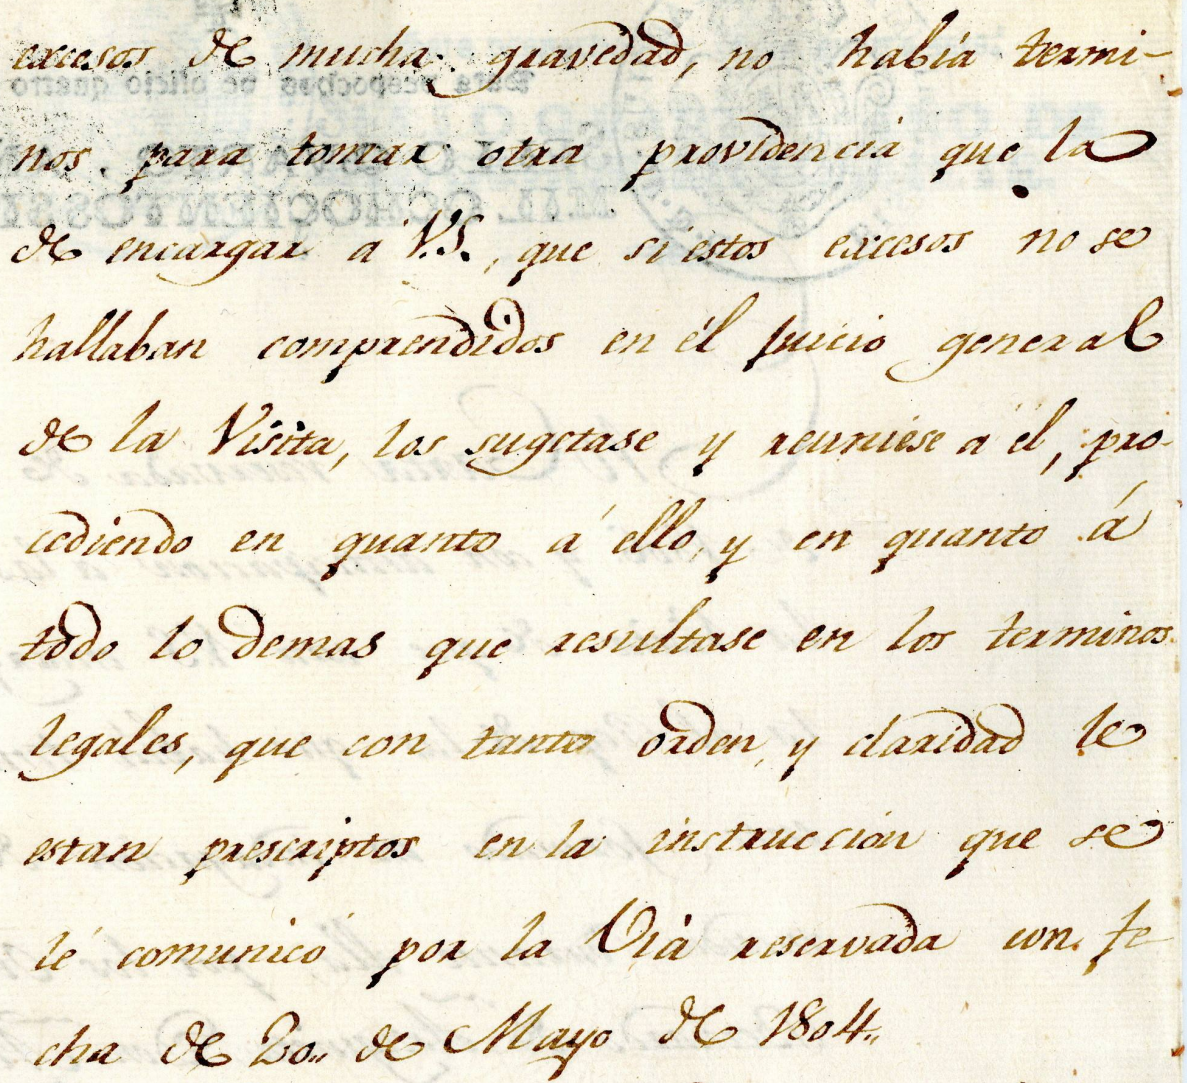 excesos de mucha gravedad, no había termi-
nos para tomar otra providencia que la
de encargar á V.S., que si estos excesos no se
hallaban comprendidos en él juicio general
de la Visita, los sugetase y reuniese a el, pro-
cediendo en quanto á ello, y en quanto á
todo lo demas que resultase en los terminos
legales, que con tanto orden, y claridad le
estan prescriptos en la instruccion que se
lé comunicó por la Viá reservada con fe-
cha de 20,, de Mayo de 1804,,